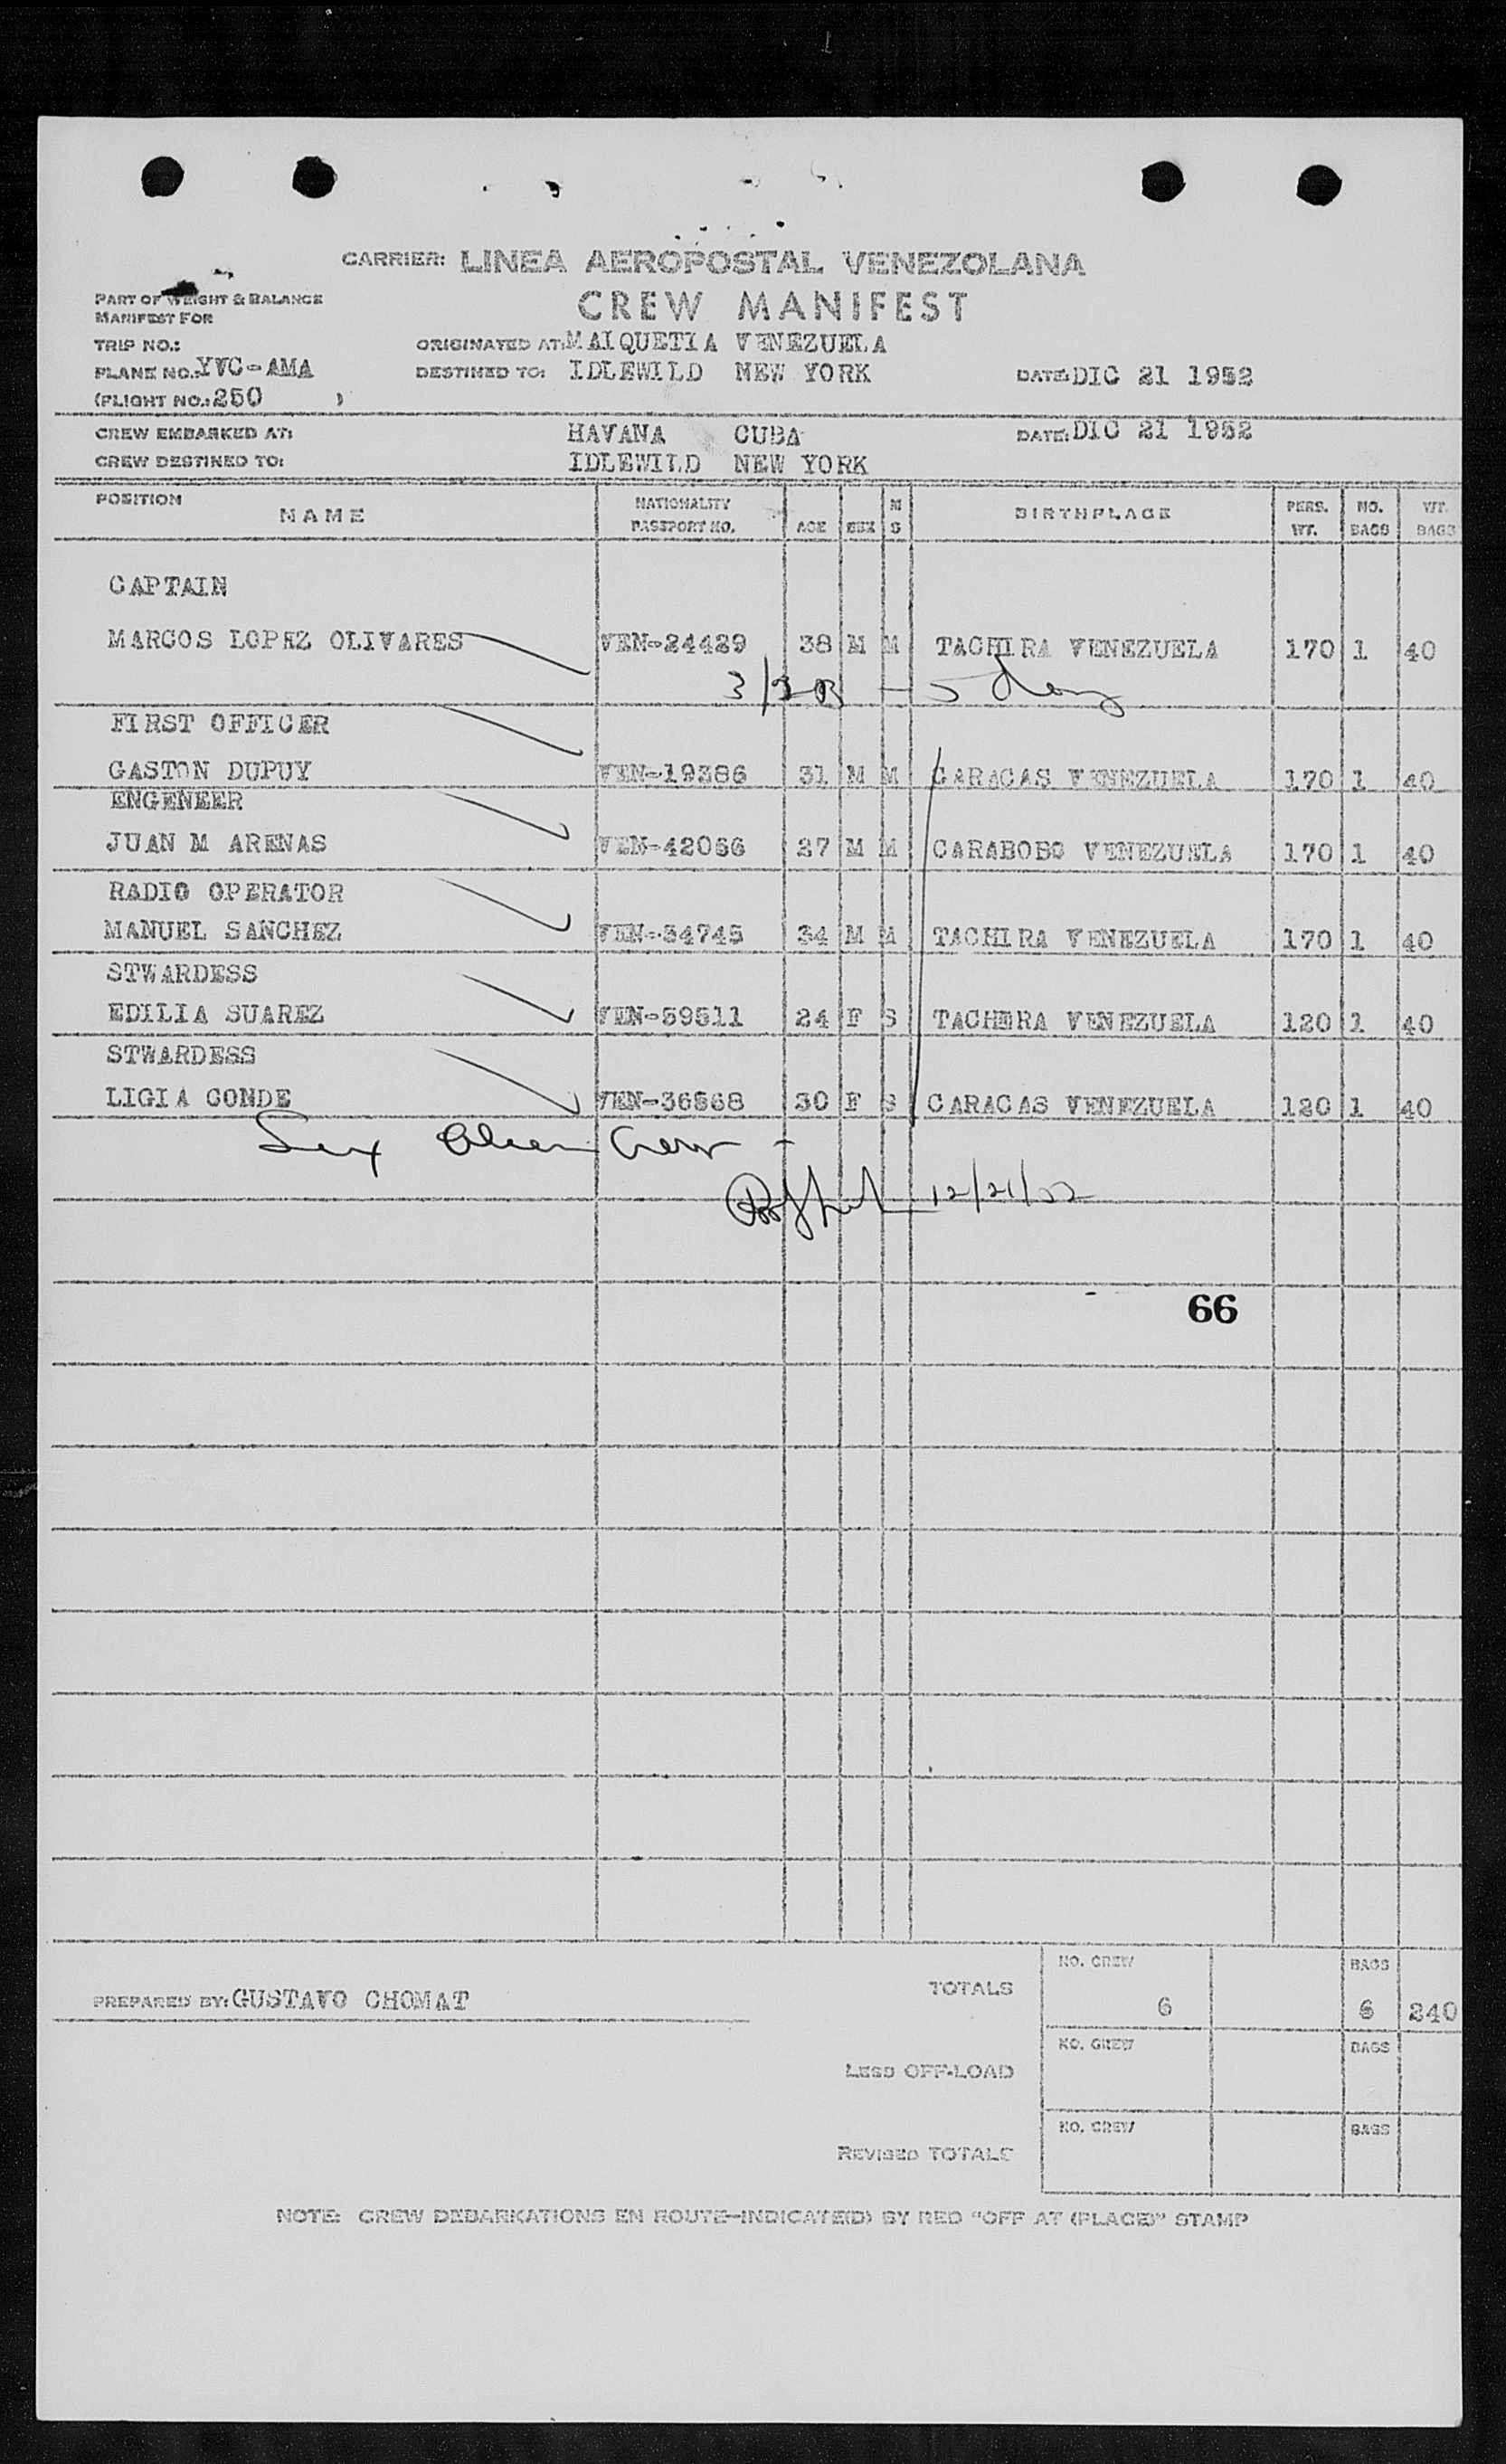 CARRIER: LINEA AEROPOSTAL VENEZOLANA
PART OF WEIGHT & BALANCE
MANIFEST FOR
CREW MANIFEST
TRIP NO.: ORIGINATED AT: MAIQUETIA VENEZUELA
PLANE NO.: YVC-AMA DESTINED TO: IDLEWILD NEW YORK DATE: DIC 21 1952
(FLIGHT NO.: 250 )
CREW EMBARKED AT: HAVANA CUBA DATE: DIC 21 1952
CREW DESTINED TO: IDLEWILD NEW YORK
POSITION NAME NATIONALITY PASSPORT NO. AGE SEX M S BIRTHPLACE PERS. WT. NO. BAGS WT. BAGS
CAPTAIN
MARCOS LOPEZ OLIVARES VEN-24429 38 M M TACHIRA VENEZUELA 170 1 40
5 day
FIRST OFFICER
GASTON DUPUY VEN-19386 31 M M CARACAS VENEZUELA 170 1 40
ENGENEER
JUAN M ARENAS VEN-42066 27 M M CARABOBO VENEZUELA 170 1 40
RADIO OPERATOR
MANUEL SANCHEZ VEN-34745 34 M M TACHIRA VENEZUELA 170 1 40
STWARDESS
EDILIA SUAREZ VEN-59511 24 F S TACHERA VENEZUELA 120 1 40
STWARDESS
LIGIA CONDE VEN-36568 30 F S CARACAS VENEZUELA 120 1 40
Six Alien Crew -
12/21/52
66
PREPARED BY: GUSTAVO CHOMAT
TOTALS NO. CREW 6 BAGS 6 240
LESS OFF-LOAD NO. CREW BAGS
REVISED TOTALS NO. CREW BAGS
NOTE: CREW DEBARKATIONS EN ROUTE-INDICATE(D) BY RED "OFF AT (PLACE)" STAMP